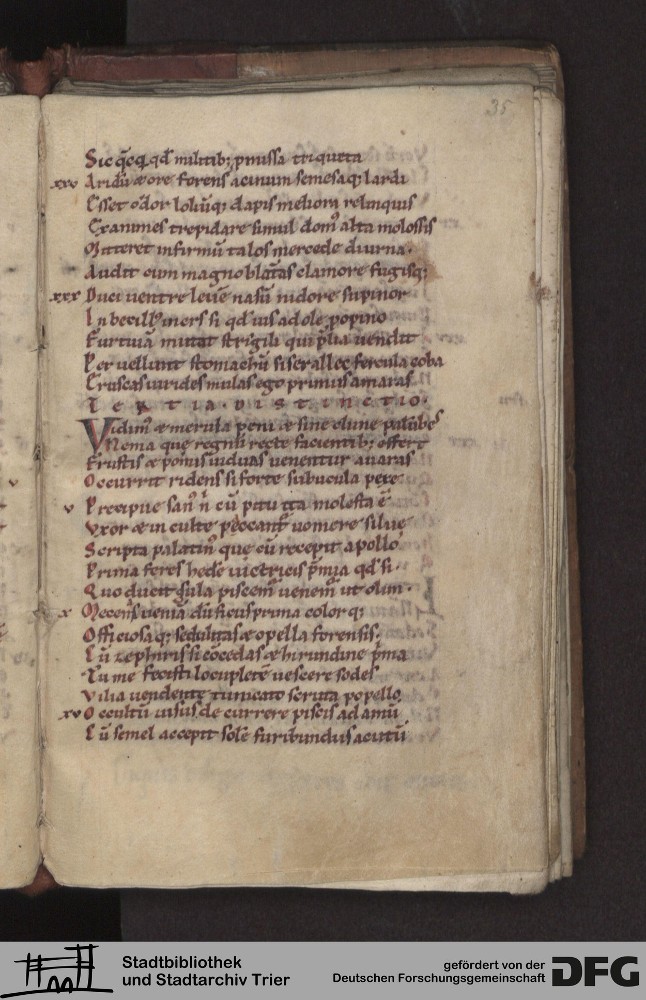 35
Sic q̄cq; qd̄ militib; pmissa triqueta
xxv Aridū & ore forens acinum semesaq; lardi
Esset odor loliūq; dapis meliora relinquis
Exanimes trepidare simul dom⁹ alta molossis
Mitteret infirmū talos mercede diurna.
Audit eum magno blatas clamore fugisq;
xxx Duci uentre leuē nasū nidore supinor
Inbecill; iners si qd uis adole popino
Furtiua mutat strigili qui p̄dia uendit
Peruellunt stomachū siser allec fecula coba
Eruscas uirides mulas ego primus amaras
Tertia. distinctio.
Vidim⁹ & merula poni & sine clune palūbes
Nema que regnū recte facientib; offert
Frustis & pomis uiduas uenentur auaras
Occurrit ridens si forte subucula pexe
v Precipue san⁹ n̄ cū pituita molesta ē
Vxor & in culte peccant uomere silue
Scripta palatin⁹ que cū recepit apollo
Prima feres hede uictricis p̄mia qd si.
Quo ducit gula piscem⁹ uenem⁹ ut olim.
x dū ficus prima colorq;
Officiosaq; sedulitas & opella forensis.
Cū zephiris si cōcedas & hirundine p̄ma
Tu me fecisti locuplete uescere sodes
Vilia uendente tunicato scruta popello
xv Occultū uisus decurrere piscis ad amū
Cū semel accepit sole furibundus acutū
Stadtbibliothek
und Stadtarchiv Trier
gefördert von der
Deutschen Forschungsgemeinschaft
DFG